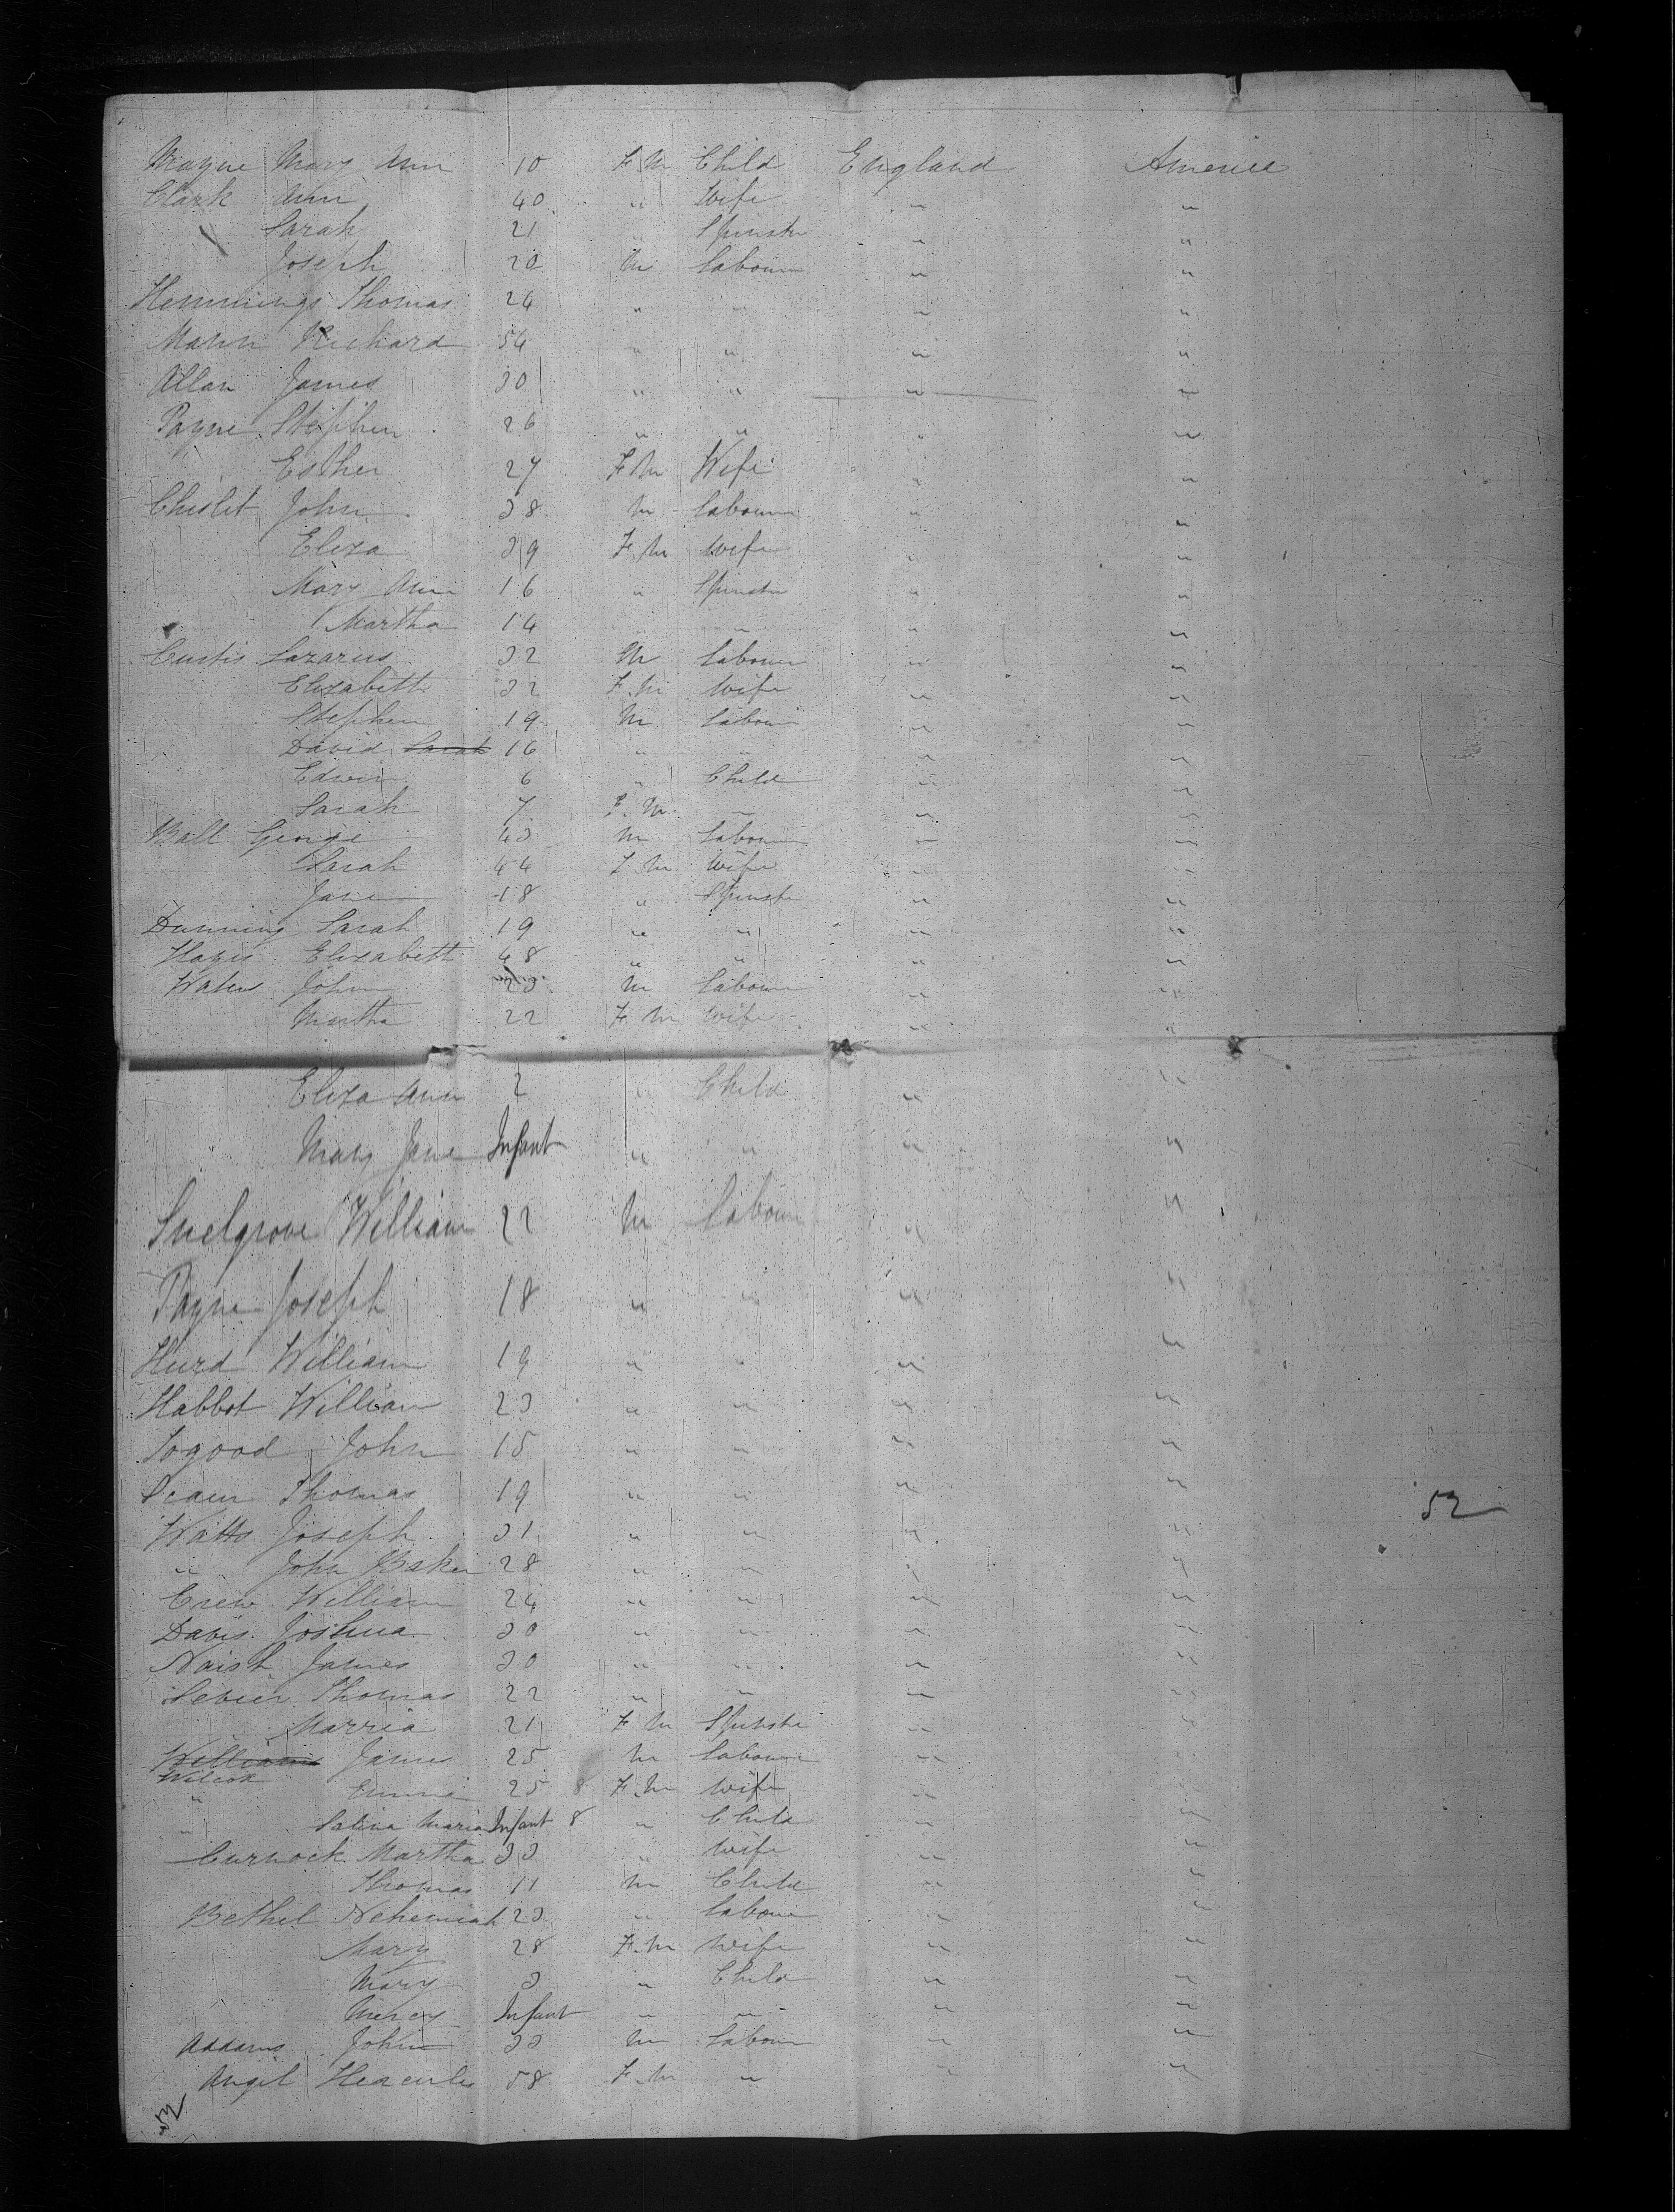 Mayne Mary Ann 10 F.M Child England America
Clark Ann 40 " Wife " "
Sarah 21 " Spinster " "
Joseph 20 M Labourer " "
Hemmings Thomas 24 " " " "
Mann Richard 54 " " " "
Allan James 30 " " " "
Payne Stephen 26 " " " "
Esther 27 F.M Wife " "
Chislet John 38 M Labourer " "
Eliza 39 F.M Wife " "
Mary Ann 16 " Spinster " "
Martha 14 " " " "
Curtis Lazarus 32 M Labourer " "
Elizabeth 32 F.M Wife " "
Stephen 19 M Labourer " "
David Sarah 16 " " " "
Edwin 6 " Child " "
Sarah 7 F.M. " " "
Ball George 43 M Labourer " "
Sarah 44 F.M Wife " "
Jane 18 " Spinster " "
Dunning Sarah 19 " " " "
Elizabeth 48 " " " "
John 23 M Labourer " "
Martha 22 F.M Wife " "
Eliza Ann 2 " Child " "
Mary Jane Infant " " " "
Snelgrove William 22 M Labourer " "
Payne Joseph 18 " " " "
Hurd William 19 " " " "
Habbot William 23 " " " "
Togood John 15 " " " "
Thomas 19 " " " "
52
Watts Joseph 31 " " " "
" John Baker 28 " " " "
Crew William 24 " " " "
Davis Joshua 30 " " " "
Naish James 30 " " " "
Thomas 22 " " " "
Marria 21 F.M Spinster " "
Williams James 25 M Labourer " "
Wilcox
" 25 8 F.M Wife " "
" Salina Maria Infant 8 " Child " "
Curnock Martha 33 " Wife " "
Thomas 11 M Child " "
Bethel Nehemiah 23 " Labourer " "
Mary 28 F.M Wife " "
Mary 3 " Child " "
Mercy Infant " " " "
Addams John 33 M Labourer " "
Angel Heacules 58 F.M " " "
52